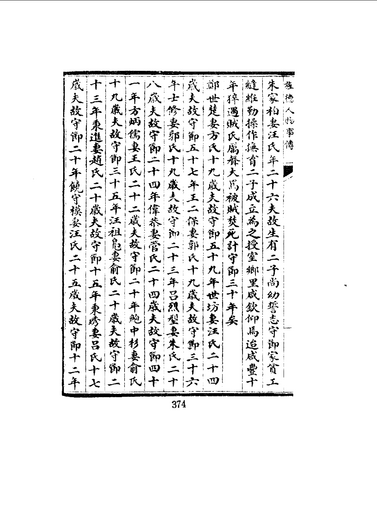 旌德人物事傳
朱家柏妻汪氏年二十六夫故生有二子尚幼誓志守節家貧工
縫維勤操作撫育二子成立為之授室鄉里咸欽仰焉迨咸豐十
年猝遇賊氏厲聲大罵被賊焚死計守節三十年矣
鄭世楚妻方氏十九歲夫故守節五十九年世坊妻汪氏二十四
歲夫故守節五十七年王二保妻郭氏十九歲夫故守節三十六
年士修妻郭氏十九歲夫故守節二十三年呂烈型妻朱氏二十
八歲夫故守節二十四年偉恭妻管氏二十四歲夫故守節四十
一年方炳儒妻王氏二十二歲夫故守節二十年鮑中杉妻俞氏
十九歲夫故守節三十五年汪祖庭妻俞氏二十歲夫故守節二
十三年秉進妻趙氏二十歲夫故守節十五年秉珍妻呂氏十七
歲夫故守節二十年饒守模妻汪氏二十五歲夫故守節十二年
374